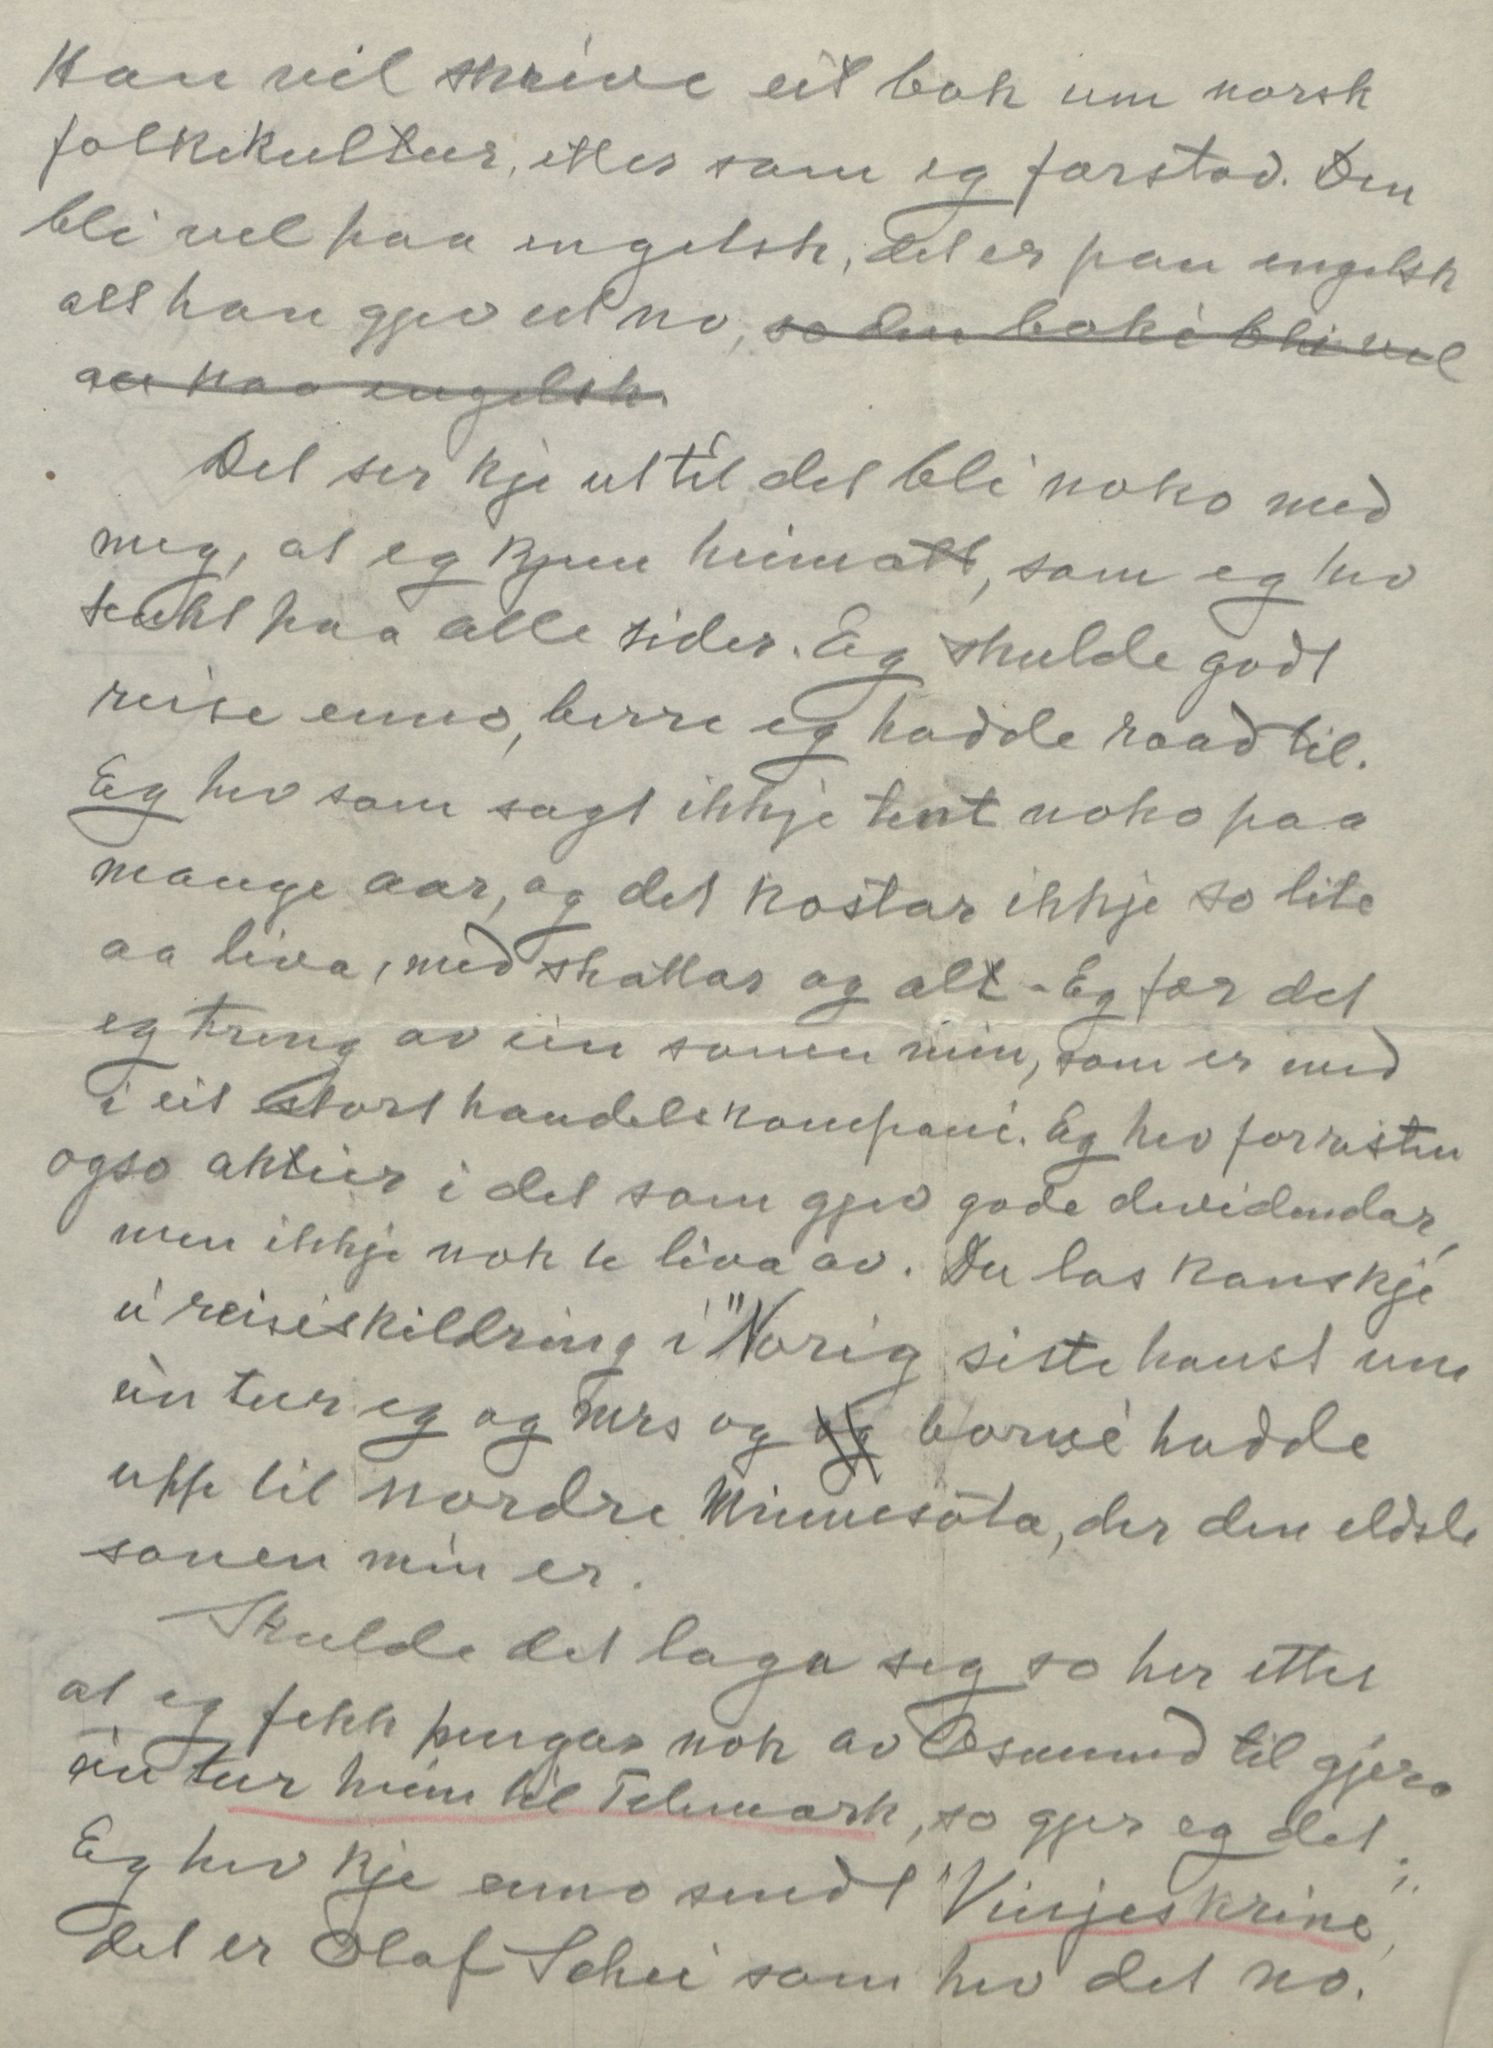 Han vil skrive eit bok um norsk
folkekultur, etter som eg forstod. Den
bli vel paa engelsk, det er paa engelsk
alt han gjev ut no, so den boki bli vel
au paa engelsk.
Det ser kje ut til det bli noko med
meg, at eg kjem heimatt, som eg hev
tenkt paa alle sider. Eg skulde godt
reise enno, berre eg hadde raad til.
Eg hev som sagt ikkje tent noko paa
mange aar, og det kostar ikkje so lite
aa liva, med skattar og alt. Eg fær det
eg treng av ein sonen min, som er med
i eit stort handelskompani. Eg hev forresten
ogso aktier i det som gjev gode devidendar,
men ikkje nok te liva av. Du las kanskje
ei reiseskildring i "Norig siste haust um
ein tur eg og Mrs og og borni hadde
uppe til nordre Minnesota, der den eldste
sonen min er.
Skulde det laga seg so her etter
at eg fekk pengar nok av Osmund til gjera
ein tur heim til Telemark, so gjer eg det.
Eg hev kje enno sendt "Vinjeskrine",
det er Olaf Schei som hev det no.